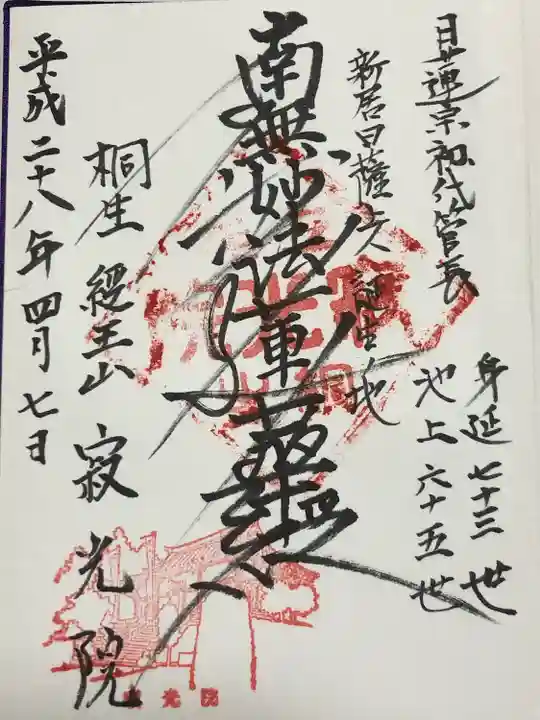 日蓮宗初代管長
身延七十三世
池上六十五世
新居日薩上人誕生地
南無妙法蓮華經
桐生 経王山 寂光院
平成二十八年四月七日
光院